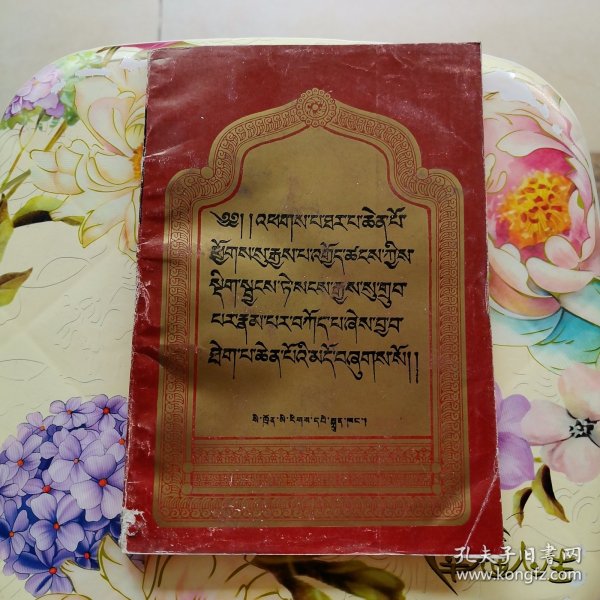 ༄༅། །འཕགས་པ་ཐར་པ་ཆེན་པོ་
ཕྱོགས་སུ་རྒྱས་པ་འགྱོད་ཚངས་ཀྱིས་
སྡིག་སྦྱངས་ཏེ་སངས་རྒྱས་སུ་གྲུབ་
པར་རྣམ་པར་བཀོད་པ་ཞེས་བྱ་བ་
ཐེག་པ་ཆེན་པོའི་མདོ་བཞུགས་སོ།།
སི་ཁྲོན་མི་རིགས་དཔེ་སྐྲུན་ཁང་།
孔夫子旧书网
www.kongfz.com